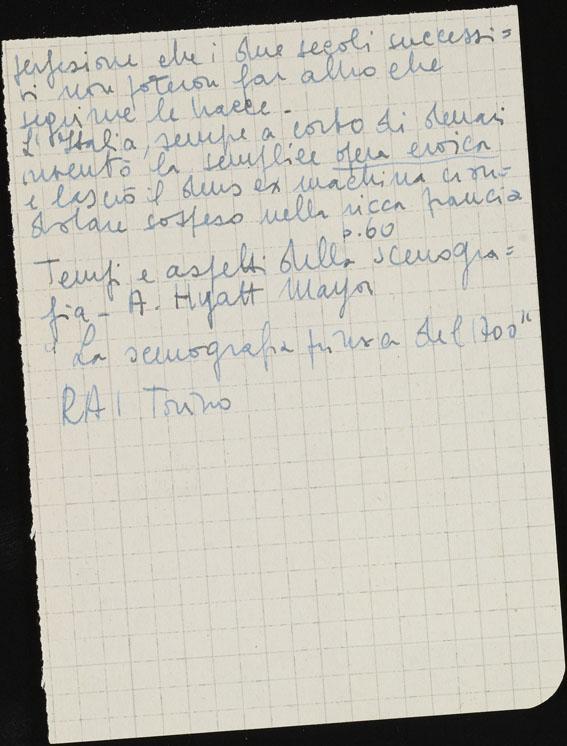 perfezione che i due secoli successi=
vi non poteron far altro che
seguirne le tracce -
L'Italia, sempre a corto di denari
inventò la semplice opera eroica
e lasciò il deus ex machina cion=
dolare sospeso nella ricca francia
p. 60
Tempi e aspetti della scenogra=
fia - A. Hyatt Mayor
"La scenografia prima del 1700"
RAI Torino